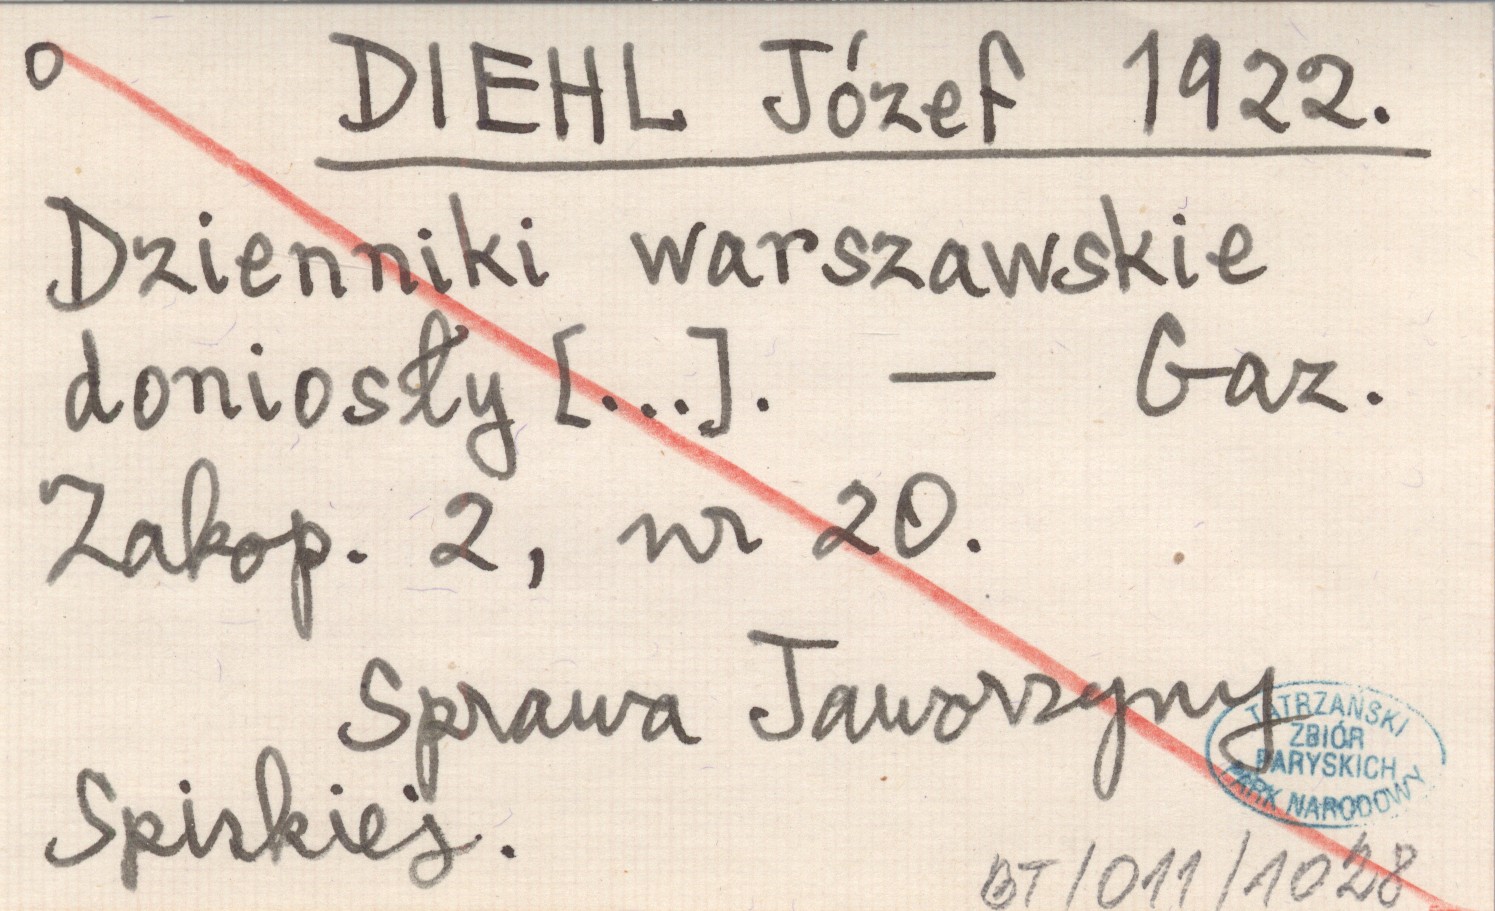 o DIEHL Józef 1922.
Dzienniki warszawskie
doniosły [...]. — Gaz.
Zakop. 2, nr 20.
Sprawa Jaworzyny
Spiskiej.
TATRZAŃSKI
ZBIÓR
PARYSKICH
PARK NARODOWY
BT/011/1028